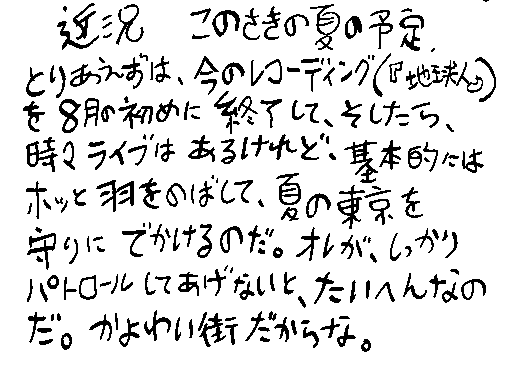 近況　このさきの夏の予定、
とりあうえずは、今のレコーディング(『地球人』)
を8月の初めに終了して、そしたら、
時々ライブはあるけれど、基本的には
ホッと羽をのばして、夏の東京を
守りにでかけるのだ。オレが、しっかり
パトロールしてあげないと、たいへんなの
だ。かよわい街だからな。